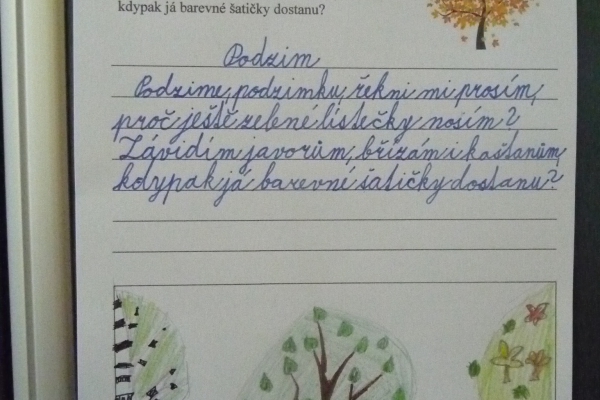 kdypak já barevné šatičky dostanu?
Podzim
Podzime, podzimku, řekni mi prosím,
proč ještě zelené lístečky nosím?
Závidím javorům, břízám i kaštanům,
kdypak já barevné šatičky dostanu?